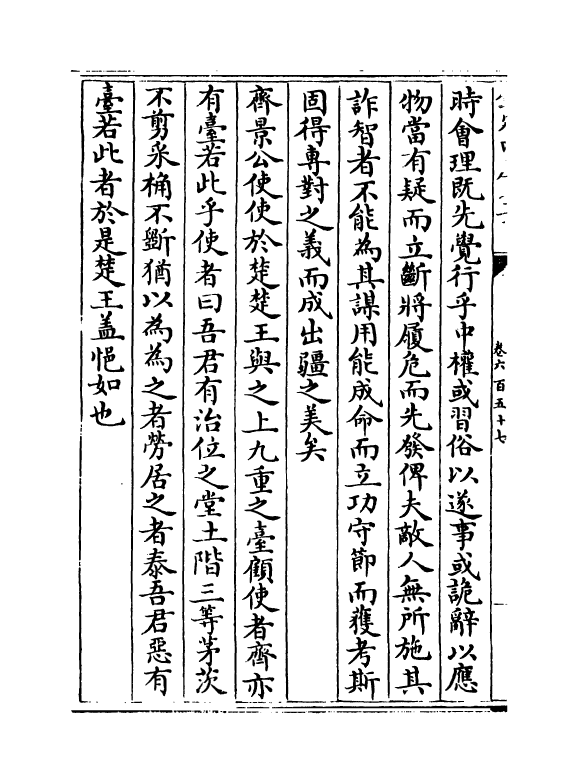 卷六百五十七
時會理既先覺行乎中權或習俗以遂事或詭辭以應
物當有疑而立斷將履危而先發俾夫敵人無所施其
詐智者不能為其謀用能成命而立功守節而獲考斯
固得專對之義而成出疆之美矣
齊景公使使於楚楚王與之上九重之臺顧使者齊亦
有臺若此乎使者曰吾君有治位之堂土階三等茅茨
不剪采桷不斵猶以為為之者勞居之者泰吾君惡有
臺若此者於是楚王盖悒如也